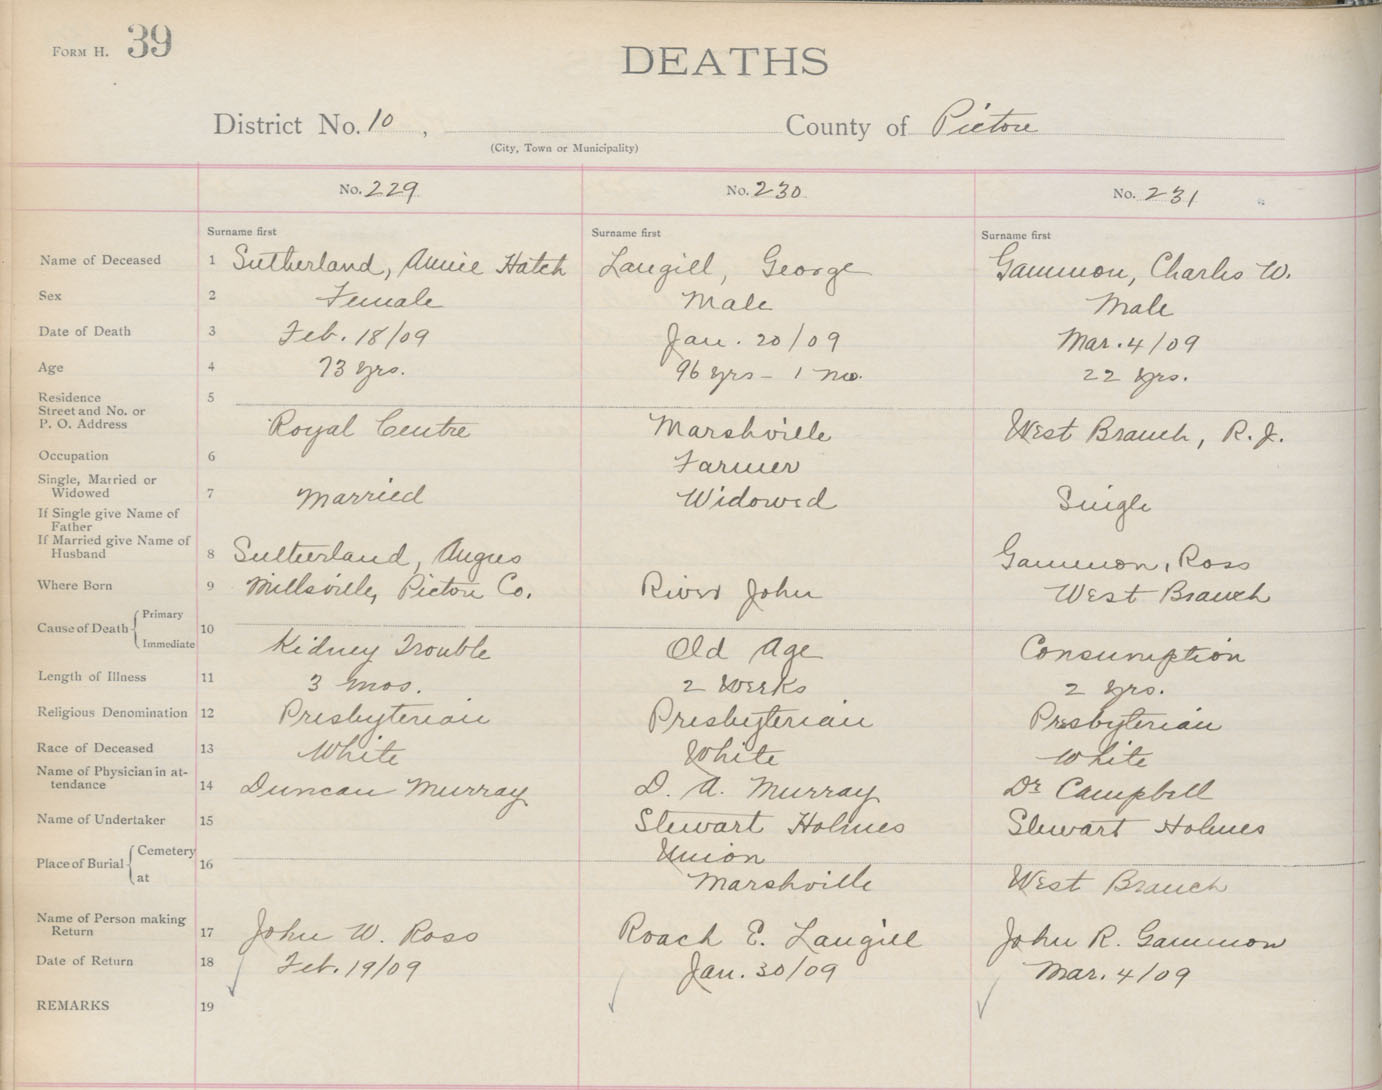 FORM H. 39
DEATHS
District No. 10 , County of Pictou
(City, Town or Municipality)
No. 229 No. 230 No. 231
Surname first Surname first Surname first
Name of Deceased 1 Sutherland, Annie Hatch Langill, George Gammon, Charles W.
Sex 2 Female Male Male
Date of Death 3 Feb. 18/09 Jan. 20/09 Mar. 4/09
Age 4 73 yrs. 96 yrs - 1 mo. 22 yrs.
Residence 5
Street and No. or
P. O. Address Royal Centre Marshville West Branch, R.J.
Occupation 6 Farmer
Single, Married or
Widowed 7 Married Widowed Single
If Single give Name of
Father
If Married give Name of
Husband 8 Sutherland, Angus Gammon, Ross
Where Born 9 Millsville, Pictou Co. River John West Branch
Cause of Death Primary 10
Immediate Kidney Trouble Old Age Consumption
Length of Illness 11 3 mos. 2 weeks 2 yrs.
Religious Denomination 12 Presbyterian Presbyterian Presbyterian
Race of Deceased 13 White White White
Name of Physician in at-
tendance 14 Duncan Murray D. A. Murray Dr Campbell
Name of Undertaker 15 Stewart Holmes Stewart Holmes
Place of Burial Cemetery 16 Union
at Marshville West Branch
Name of Person making
Return 17 John W. Ross Roach E. Langill John R. Gammon
Date of Return 18 Feb. 19/09 Jan. 30/09 Mar. 4/09
REMARKS 19